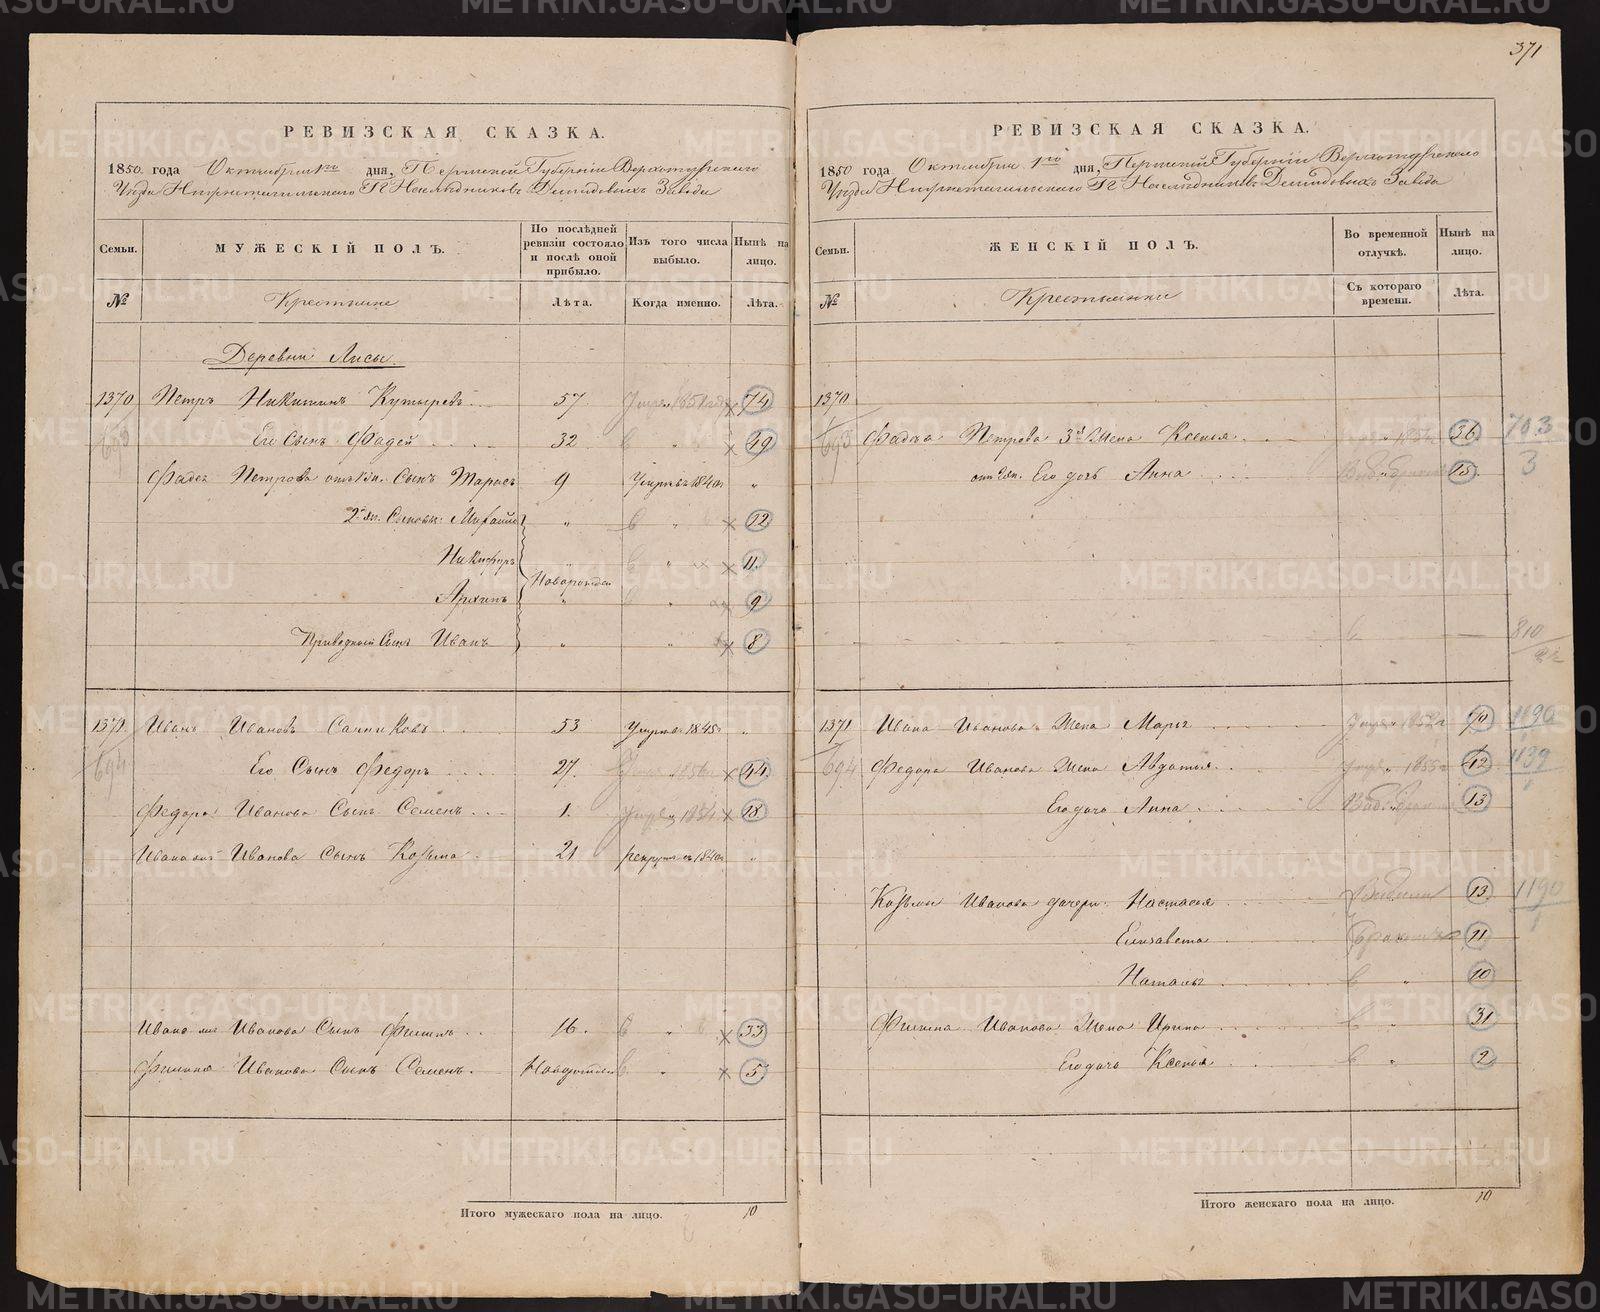 371
РЕВИЗСКАЯ СКАЗКА.
1850. года Октября 1го дня, Пермской Губерніи Верхотурскаго
Уезда Нижнетагильскаго Гг Наследниковъ Демидовыхъ Завода
Семьи. МУЖЕСКІЙ ПОЛЪ. По послѣдней ревизіи состояло и послѣ оной прибыло. Изъ того числа выбыло. Нынѣ на лицо.
№ Крестьяне Лѣта. Когда именно. Лѣта.
Деревни Лисы
1370 Петръ Никитинъ Кутыревъ 57 74
693 Его Сынъ Фадей 32 49
Фадея Петрова отъ 1й ж. Сынъ Тарасъ 9 Умеръ 1840 "
2й ж. Сыновья: Михайло " 12
Никифоръ 11
Новорожден
Архипъ " 9
Приводный Сынъ Иванъ " 8
1371 Иванъ Ивановъ Санниковъ 53 Умеръ 1845 "
694 Его Сынъ Федоръ 27. 44
Федора Иванова Сынъ Семенъ 1. 18
Ивана Иванова Сынъ Козьма 21 рекрутъ въ 1840 "
Ивана Иванова Сынъ Филипъ 16. 33
Филипа Иванова Сынъ Семенъ. Новорожден 5
Итого мужескаго пола на лицо. 10
РЕВИЗСКАЯ СКАЗКА.
1850 года Октября 1го дня, Пермской Губерніи Верхотурскаго
Уезда Нижнетагильскаго Гг Наследниковъ Демидовыхъ Завода
Семьи. ЖЕНСКІЙ ПОЛЪ. Во временной отлучкѣ. Нынѣ на лицо.
№ Крестьянки Съ котораго времени. Лѣта.
1370
693 Фадѣя Петрова 3я Жена Ксенья 36 703
отъ 2й ж. Его дочь Анна 15 3
810
1371 Ивана Иванова Жена Марья 70 1190
694 Федора Иванова Жена Авдотья 42 1139
Его дочь Анна 13
Козьмы Иванова дочери: Настасья 13 1190
Елизавета 11
Наталья 10
Филипа Иванова Жена Ирина 31
Его дочь Ксенья 2
Итого женскаго пола на лицо. 10
METRIKI.GASO-URAL.RU